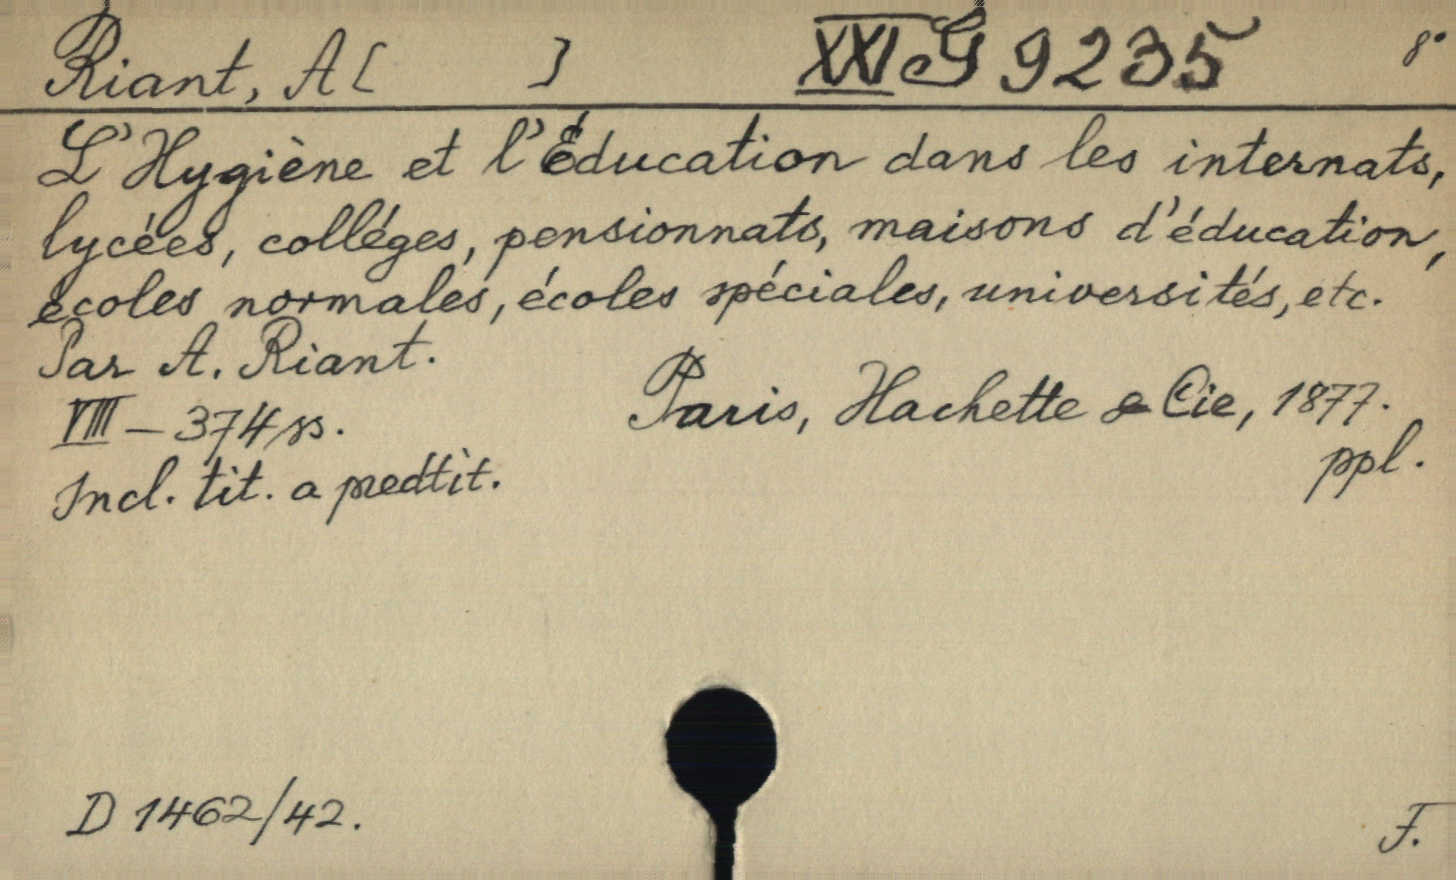 Riant, A [ ] XXI G 9235 8°
L'Hygiène et l'Éducation dans les internats,
lycées, colléges, pensionnats, maisons d'éducation,
écoles normales, écoles spéciales, universités, etc.
Par A. Riant.
Paris, Hachette & Cie, 1877.
VIII – 374 ss.
ppl.
Incl. tit. a predtit.
D 1462/42.
F.